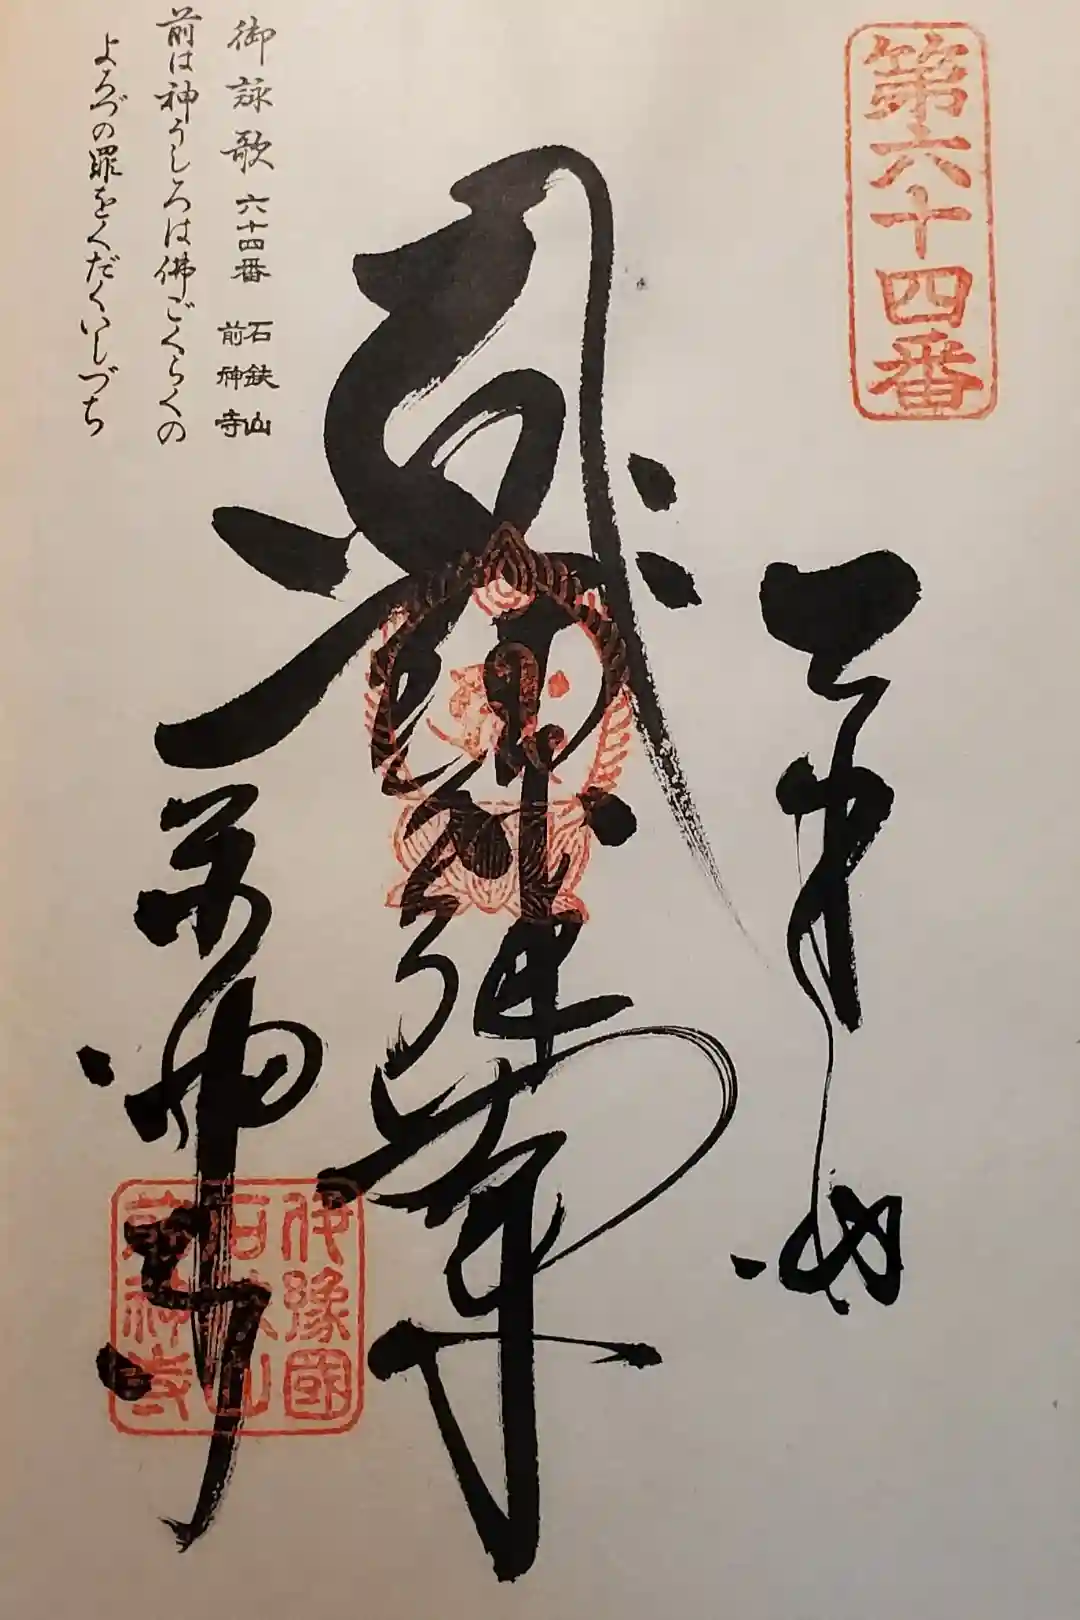 第六十四番
奉納
阿弥陀如来
前神寺
伊豫國
石鈇山
前神寺
御詠歌 六十四番 石鈇山 前神寺
前は神うしろは佛ごくらくの
よろづの罪をくだくいしづち